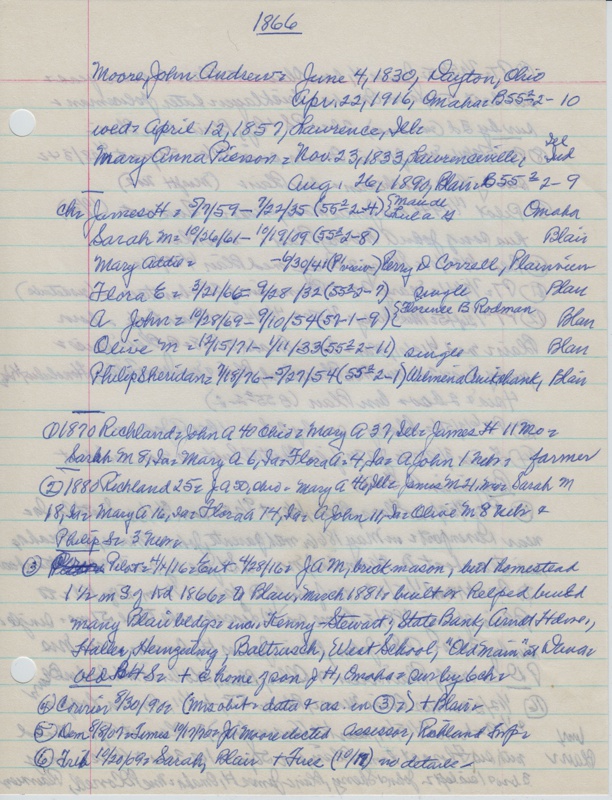 1866
Moore, John Andrew = June 4, 1830, Dayton, Ohio
Apr. 22, 1916, Omaha = B55½2-10
wed = April 12, 1857, Lawrence, Ills
Mary Anna Pierson = Nov. 23, 1833, Lawrenceville,
Aug. 26, 1890, Blair = B55½2-9
Chr James H = 5/7/59 - 7/22/35 (55½2-4) {Maude Lula G Omaha
Sarah M = 10/26/61 - 10/19/09 (55½2-8) Blair
Mary Addie = -6/30/41 (Plnview) Perry D Correll, Plainview
Flora E = 3/21/66 - 9/28/32 (55½2-7) single Blair
A. John = 10/28/69 - 9/10/54 (57-1-9) {Florence B Rodman Blair
Olive M = 12/15/71 - 1/11/33 (55½2-11) single Blair
Philip Sheridan = 7/18/76 - 5/27/54 (55½2-1) Cruikshank, Blair
① 1870 Richland = John A 40 Ohio = Mary A 37, Ill = James H 11 Mo =
Sarah M 8, Ia = Mary A 6, Ia = Flora A = 4, Ia = A John 1 Nebr = farmer
② 1880 Richland 25 = J A 50, Ohio = Mary A 46, Ill = James M 21, Mo = Sarah M
18, Ia = Mary A 16, Ia = Flora A 14, Ia = A John 11, Ia = Olive M 8 Nebr &
Philip S = 3 Nebr =
③ Pilot = 4/4/16 = Ent 4/28/16 = J A M, brick mason, but homestead
1½ mn S of Kd 1866 = to Blair, March 1881 = built or helped build
many Blair bldgs = inc. Kenny-Stewart, State Bank, Arndt Homes,
Haller, Baltrusch, West School, "Old Main" at Dana
old BHS = + @ home of son J H, Omaha = survby 6 chr =
④ Courier 8/30/90 = (Mrs obit = data @ as. in ③ =) + Blair =
⑤ Dem = Times J A Moore elected assessor, Richland Twp =
⑥ Trib 10/20/09 = Sarah, Blair + Tues (10/19) no details =